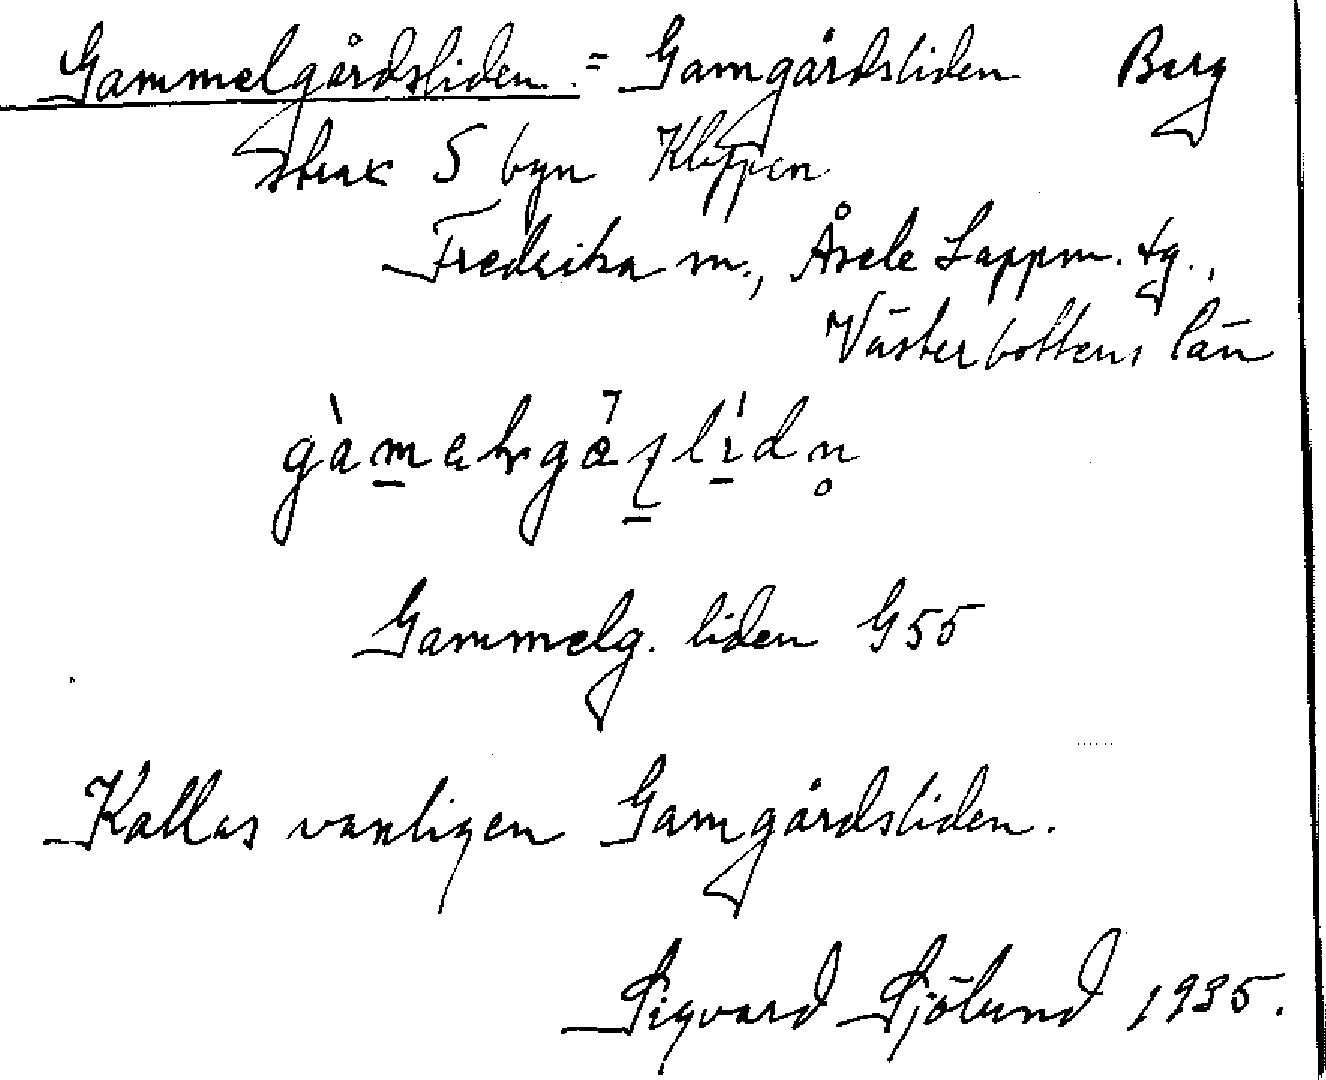 Gammelgårdsliden. = Gamgårdsliden Berg
strax S byn Klippen
Fredrika sn., Åsele Lappm. tg.,
Västerbottens län
Gammelg. liden G55
Kallas vanligen Gamgårdsliden.
Sigvard Sjölund 1935.